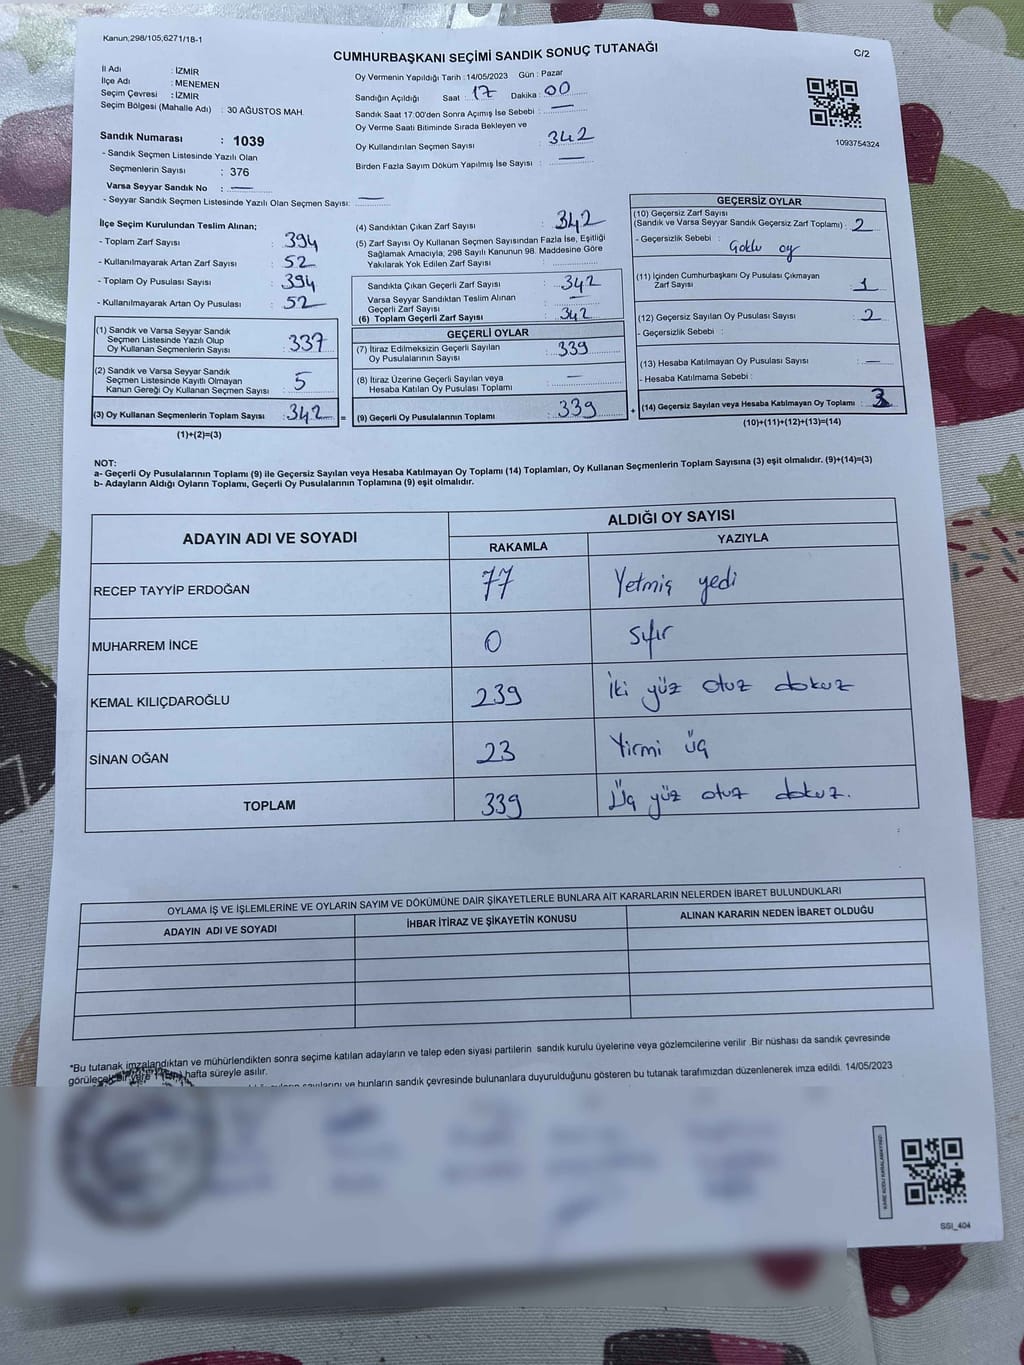 Kanun;298/105,6271/18-1
CUMHURBAŞKANI SEÇİMİ SANDIK SONUÇ TUTANAĞI
C/2
İl Adı : İZMİR
İlçe Adı : MENEMEN
Seçim Çevresi : İZMİR
Seçim Bölgesi (Mahalle Adı) : 30 AĞUSTOS MAH.
Sandık Numarası : 1039
- Sandık Seçmen Listesinde Yazılı Olan
Seçmenlerin Sayısı : 376
Varsa Seyyar Sandık No : —
- Seyyar Sandık Seçmen Listesinde Yazılı Olan Seçmen Sayısı: —
Oy Vermenin Yapıldığı Tarih : 14/05/2023 Gün : Pazar
Sandığın Açıldığı Saat : 17 Dakika : 00
Sandık Saat 17:00'den Sonra Açımış İse Sebebi : —
Oy Verme Saati Bitiminde Sırada Bekleyen ve
Oy Kullandırılan Seçmen Sayısı : 342
Birden Fazla Sayım Döküm Yapılmış İse Sayısı : —
1093754324
İlçe Seçim Kurulundan Teslim Alınan;
- Toplam Zarf Sayısı : 394
- Kullanılmayarak Artan Zarf Sayısı : 52
- Toplam Oy Pusulası Sayısı : 394
- Kullanılmayarak Artan Oy Pusulası : 52
(1) Sandık ve Varsa Seyyar Sandık
Seçmen Listesinde Yazılı Olup
Oy Kullanan Seçmenlerin Sayısı : 337
(2) Sandık ve Varsa Seyyar Sandık
Seçmen Listesinde Kayıtlı Olmayan
Kanun Gereği Oy Kullanan Seçmen Sayısı : 5
(3) Oy Kullanan Seçmenlerin Toplam Sayısı : 342
(1)+(2)=(3)
(4) Sandıktan Çıkan Zarf Sayısı : 342
(5) Zarf Sayısı Oy Kullanan Seçmen Sayısından Fazla İse, Eşitliği
Sağlamak Amacıyla, 298 Sayılı Kanunun 98. Maddesine Göre
Yakılarak Yok Edilen Zarf Sayısı :
Sandıkta Çıkan Geçerli Zarf Sayısı : 342
Varsa Seyyar Sandıktan Teslim Alınan
Geçerli Zarf Sayısı : —
(6) Toplam Geçerli Zarf Sayısı : 342
GEÇERLİ OYLAR
(7) İtiraz Edilmeksizin Geçerli Sayılan
Oy Pusulalarının Sayısı : 339
(8) İtiraz Üzerine Geçerli Sayılan veya
Hesaba Katılan Oy Pusulası Toplamı : —
= (9) Geçerli Oy Pusulalarının Toplamı : 339
GEÇERSİZ OYLAR
(10) Geçersiz Zarf Sayısı
(Sandık ve Varsa Seyyar Sandık Geçersiz Zarf Toplamı) : 2
- Geçersizlik Sebebi : Goklu oy
(11) İçinden Cumhurbaşkanı Oy Pusulası Çıkmayan
Zarf Sayısı : 1
(12) Geçersiz Sayılan Oy Pusulası Sayısı : 2
- Geçersizlik Sebebi :
(13) Hesaba Katılmayan Oy Pusulası Sayısı : —
- Hesaba Katılmama Sebebi :
+ (14) Geçersiz Sayılan veya Hesaba Katılmayan Oy Toplamı : 3
(10)+(11)+(12)+(13)=(14)
NOT:
a- Geçerli Oy Pusulalarının Toplamı (9) ile Geçersiz Sayılan veya Hesaba Katılmayan Oy Toplamı (14) Toplamları, Oy Kullanan Seçmenlerin Toplam Sayısına (3) eşit olmalıdır. (9)+(14)=(3)
b- Adayların Aldığı Oyların Toplamı, Geçerli Oy Pusulalarının Toplamına (9) eşit olmalıdır.
ADAYIN ADI VE SOYADI ALDIĞI OY SAYISI
RAKAMLA YAZIYLA
RECEP TAYYİP ERDOĞAN 77 Yetmiş yedi
MUHARREM İNCE 0 Sıfır
KEMAL KILIÇDAROĞLU 239 İki yüz otuz dokuz
SİNAN OĞAN 23 Yirmi üç
TOPLAM 339 Üç yüz otuz dokuz.
OYLAMA İŞ VE İŞLEMLERİNE VE OYLARIN SAYIM VE DÖKÜMÜNE DAİR ŞİKAYETLERLE BUNLARA AİT KARARLARIN NELERDEN İBARET BULUNDUKLARI
ADAYIN ADI VE SOYADI İHBAR İTİRAZ VE ŞİKAYETİN KONUSU ALINAN KARARIN NEDEN İBARET OLDUĞU
*Bu tutanak imzalandıktan ve mühürlendikten sonra seçime katılan adayların ve talep eden siyasi partilerin sandık kurulu üyelerine veya gözlemcilerine verilir .Bir nüshası da sandık çevresinde
görülecek bir yere 1 hafta süreyle asılır.
bunların sandık çevresinde bulunanlara duyurulduğunu gösteren bu tutanak tarafımızdan düzenlenerek imza edildi. 14/05/2023
SSI_404